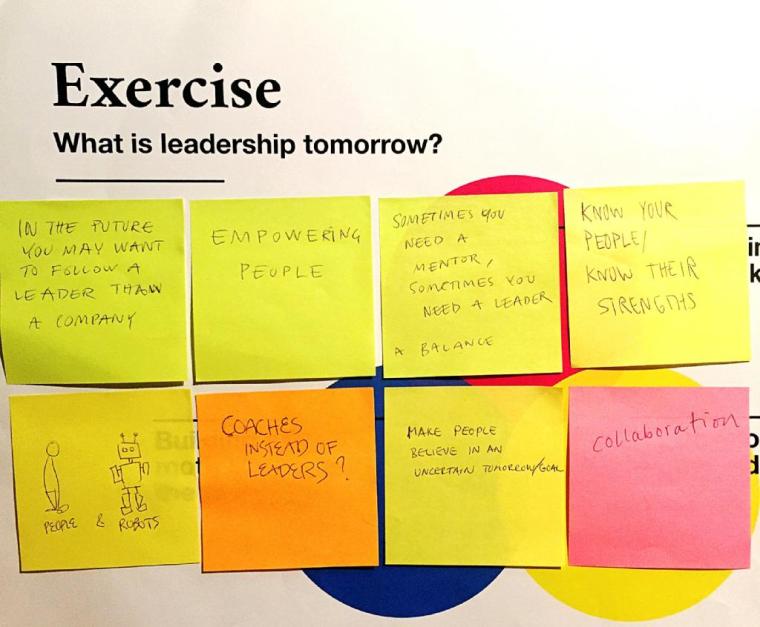 Exercise
What is leadership tomorrow?
IN THE FUTURE
YOU MAY WANT
TO FOLLOW A
LEADER THAN
A COMPANY
EMPOWERING
PEOPLE
SOMETIMES YOU
NEED A
MENTOR,
SOMETIMES YOU
NEED A LEADER
A BALANCE
KNOW YOUR
PEOPLE/
KNOW THEIR
STRENGTHS
PEOPLE & ROBOTS
COACHES
INSTEAD OF
LEADERS?
MAKE PEOPLE
BELIEVE IN AN
UNCERTAIN TOMORROW/GOAL
collaboration